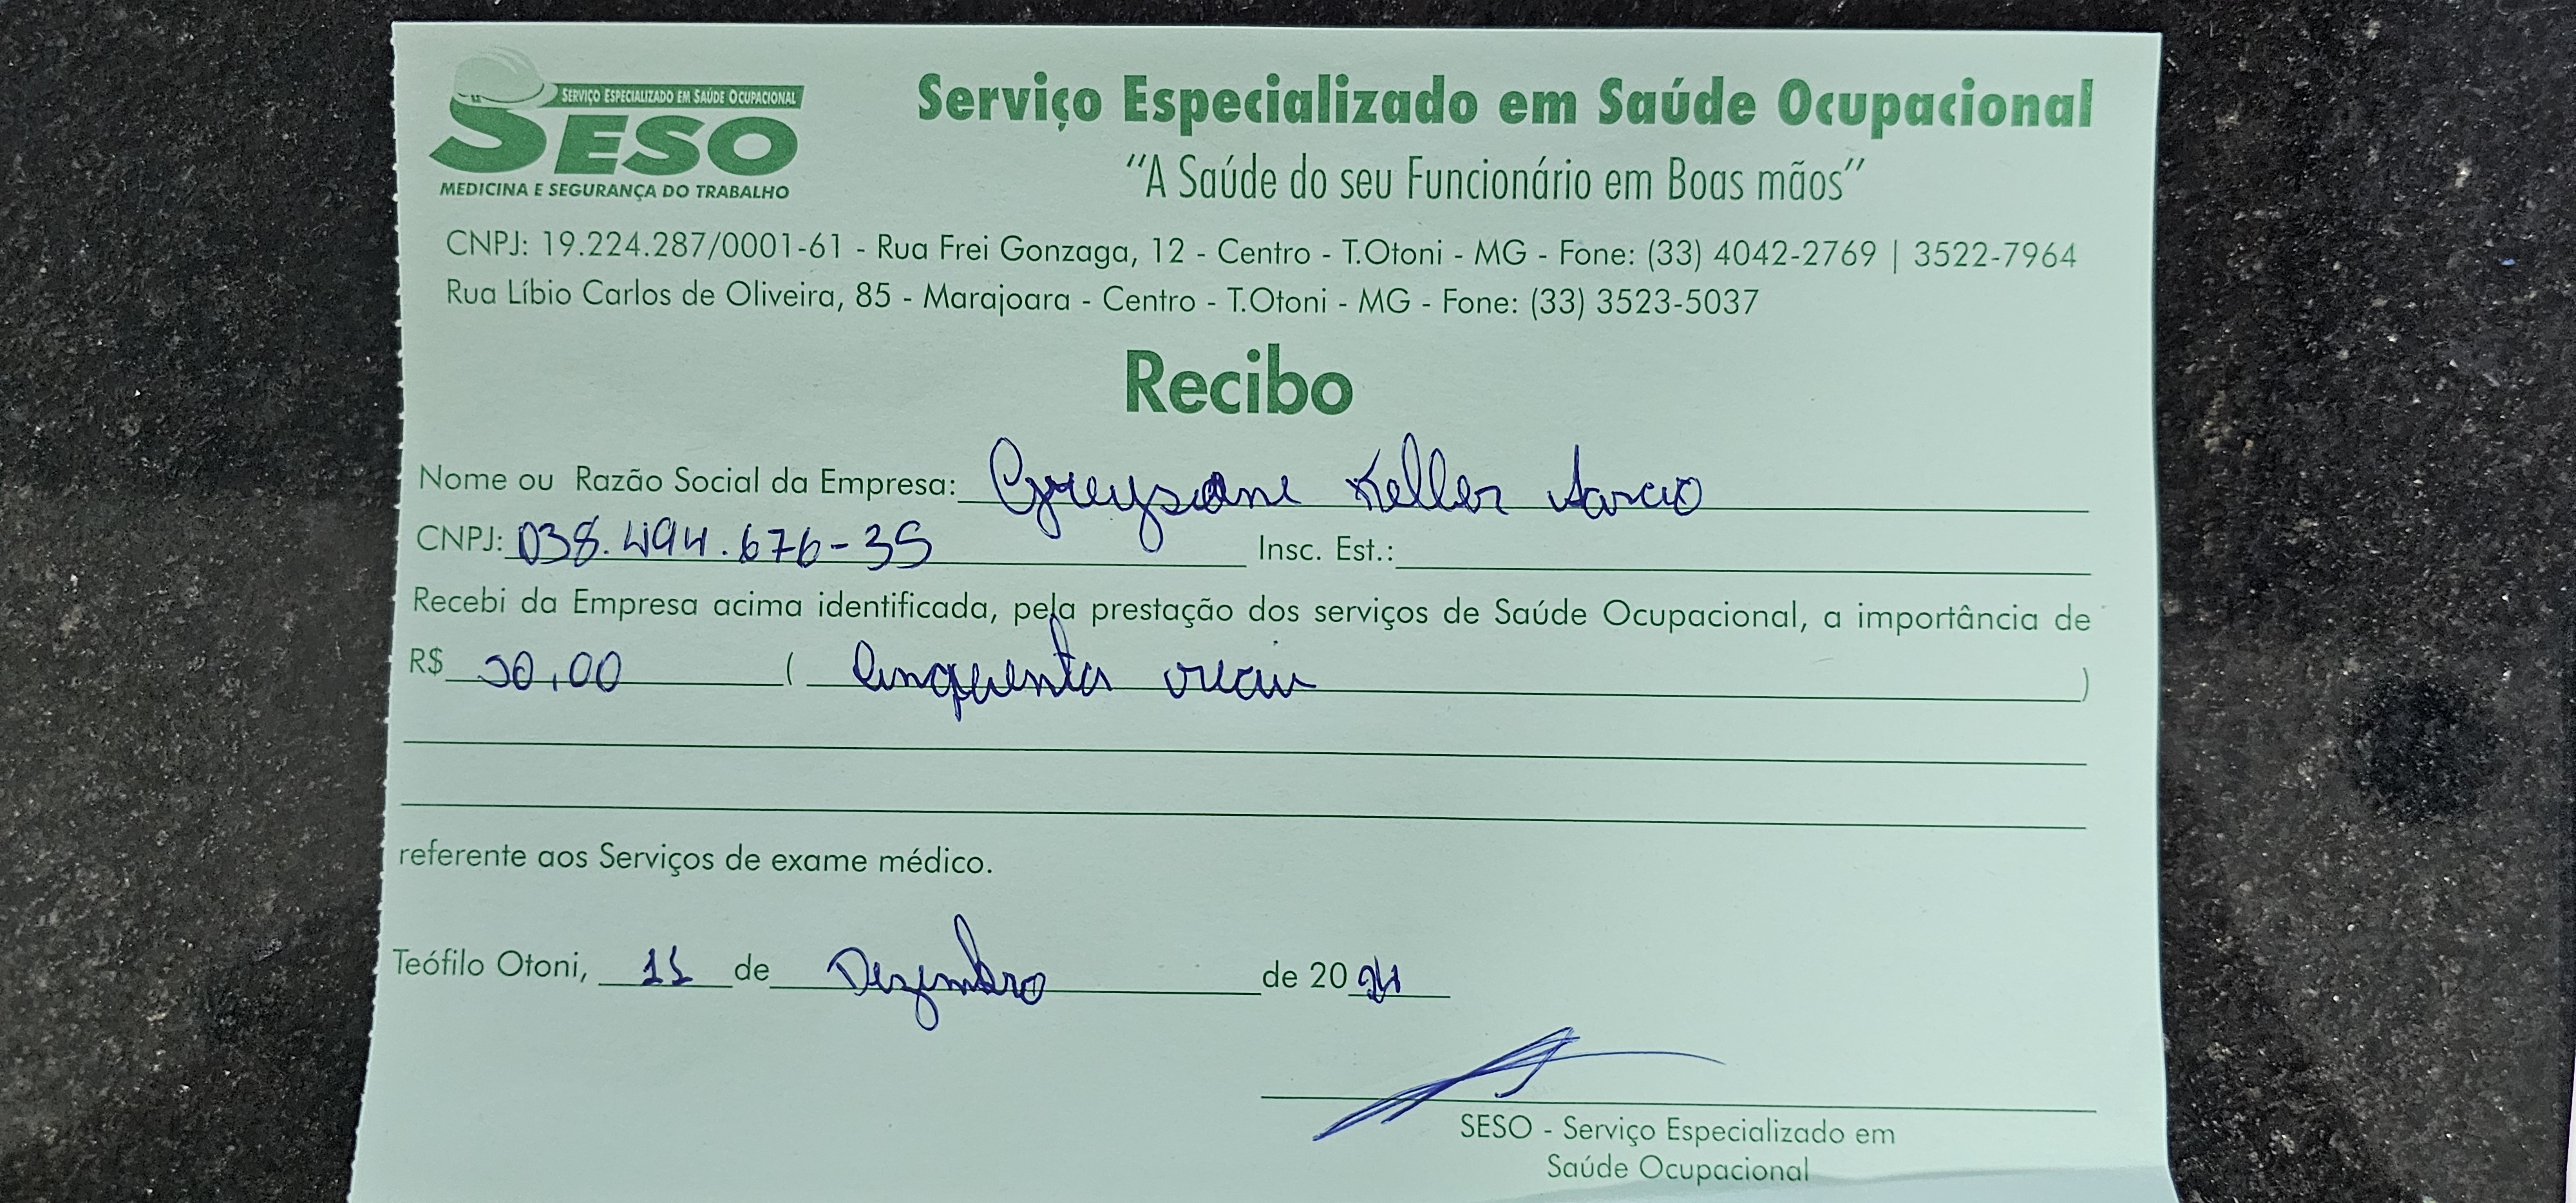 SERVIÇO ESPECIALIZADO EM SAÚDE OCUPACIONAL
SESO
MEDICINA E SEGURANÇA DO TRABALHO
Serviço Especializado em Saúde Ocupacional
"A Saúde do seu Funcionário em Boas mãos"
CNPJ: 19.224.287/0001-61 - Rua Frei Gonzaga, 12 - Centro - T.Otoni - MG - Fone: (33) 4042-2769 | 3522-7964
Rua Líbio Carlos de Oliveira, 85 - Marajoara - Centro - T.Otoni - MG - Fone: (33) 3523-5037
Recibo
Nome ou Razão Social da Empresa: Keller
CNPJ: Insc. Est.:
Recebi da Empresa acima identificada, pela prestação dos serviços de Saúde Ocupacional, a importância de
R$ 50,00 ( Cinquenta reais )
referente aos Serviços de exame médico.
Teófilo Otoni, de Dezembro de 20
SESO - Serviço Especializado em
Saúde Ocupacional